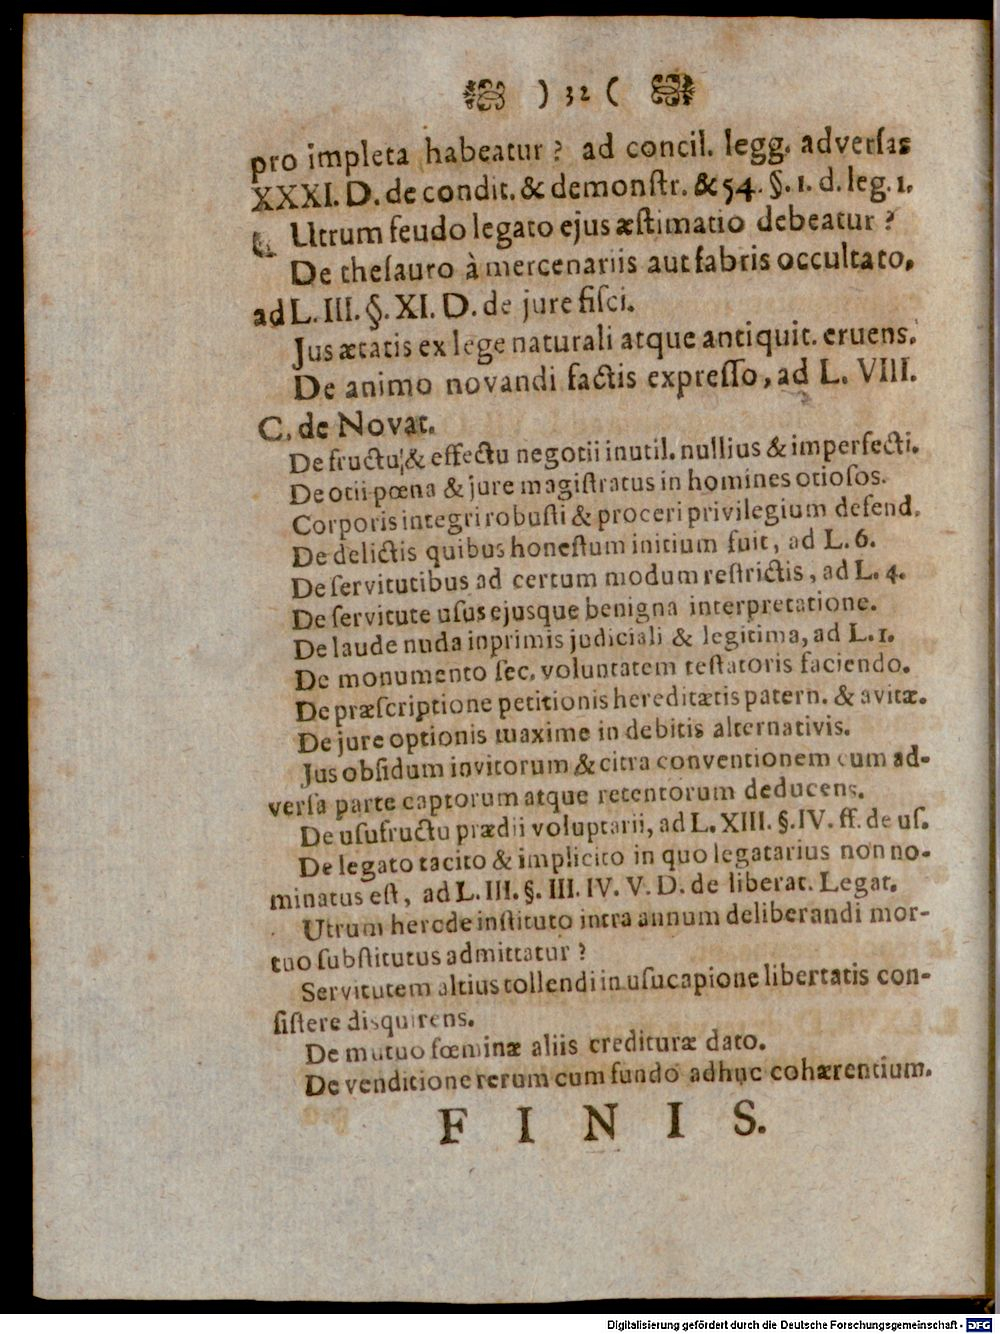 ) 32 (
pro impleta habeatur? ad concil. legg. adversas
XXXI. D. de condit. & demonstr. & 54. §. 1. d. leg. 1.
Utrum feudo legato ejus æstimatio debeatur?
De thesauro à mercenariis aut fabris occultato,
ad L. III. §. XI. D. de jure fisci.
Jus ætatis ex lege naturali atque antiquit. eruens.
De animo novandi factis expresso, ad L. VIII.
C. de Novat.
De fructu & effectu negotii inutil. nullius & imperfecti.
De otii pœna & jure magistratus in homines otiosos.
Corporis integri robusti & proceri privilegium defend.
De delictis quibus honestum initium fuit, ad L. 6.
De servitutibus ad certum modum restrictis, ad L. 4.
De servitute usus ejusque benigna interpretatione.
De laude nuda inprimis judiciali & legitima, ad L. 1.
De monumento sec. voluntatem testatoris faciendo.
De præscriptione petitionis hereditætis patern. & avitæ.
De jure optionis maxime in debitis alternativis.
Jus obsidum invitorum & citra conventionem cum ad-
versa parte captorum atque retentorum deducens.
De usufructu prædii voluptarii, ad L. XIII. §. IV. ff. de us.
De legato tacito & implicito in quo legatarius non no-
minatus est, ad L. III. §. III. IV. V. D. de liberat. Legat.
Utrum herede instituto intra annum deliberandi mor-
tuo substitutus admittatur?
Servitutem altius tollendi in usucapione libertatis con-
sistere disquirens.
De mutuo fœminæ aliis crediturae dato.
De venditione rerum cum fundo adhuc cohærentium.
F I N I S.
Digitalisierung gefördert durch die Deutsche Forschungsgemeinschaft - DFG